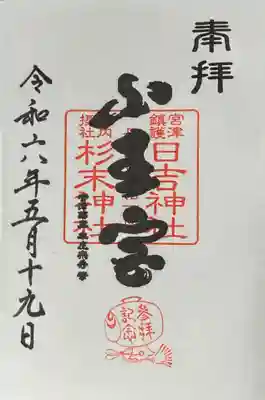 奉拝
宮津
鎮護
日吉神社
山王宮
摂社
杉末神社
令和六年五月十九日
参拝
記念